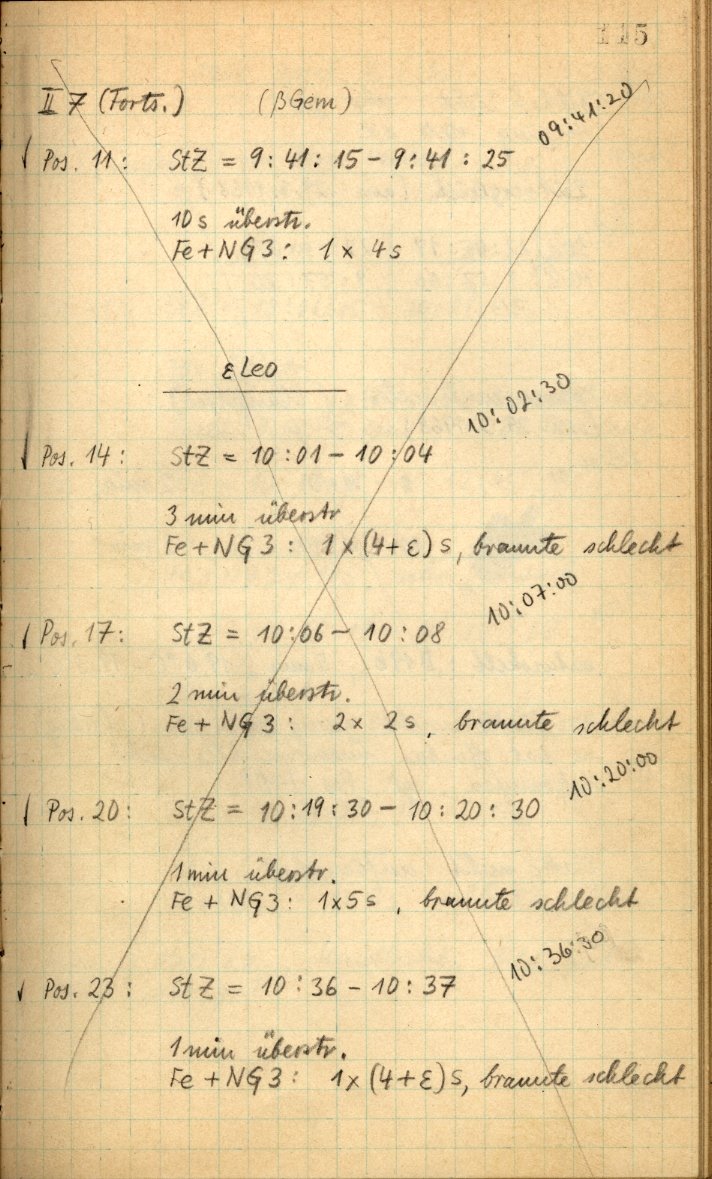 115
II 7 (Forts.) (βGem)
09:41:20
Pos. 11: StZ = 9:41:15 - 9:41:25
10s überstr.
Fe+NG3: 1x 4s
εLeo
10:02:30
Pos. 14: StZ = 10:01 - 10:04
3 min überstr
Fe+NG3: 1x(4+ε)s, brannte schlecht
10:07:00
Pos. 17: StZ = 10:06 - 10:08
2 min überstr.
Fe+NG3: 2x 2s, brannte schlecht
10:20:00
Pos. 20: StZ = 10:19:30 - 10:20:30
1 min überstr.
Fe+NG3: 1x5s, brannte schlecht
10:36:30
Pos. 23: StZ = 10:36 - 10:37
1 min überstr.
Fe+NG3: 1x(4+ε)s, brannte schlecht